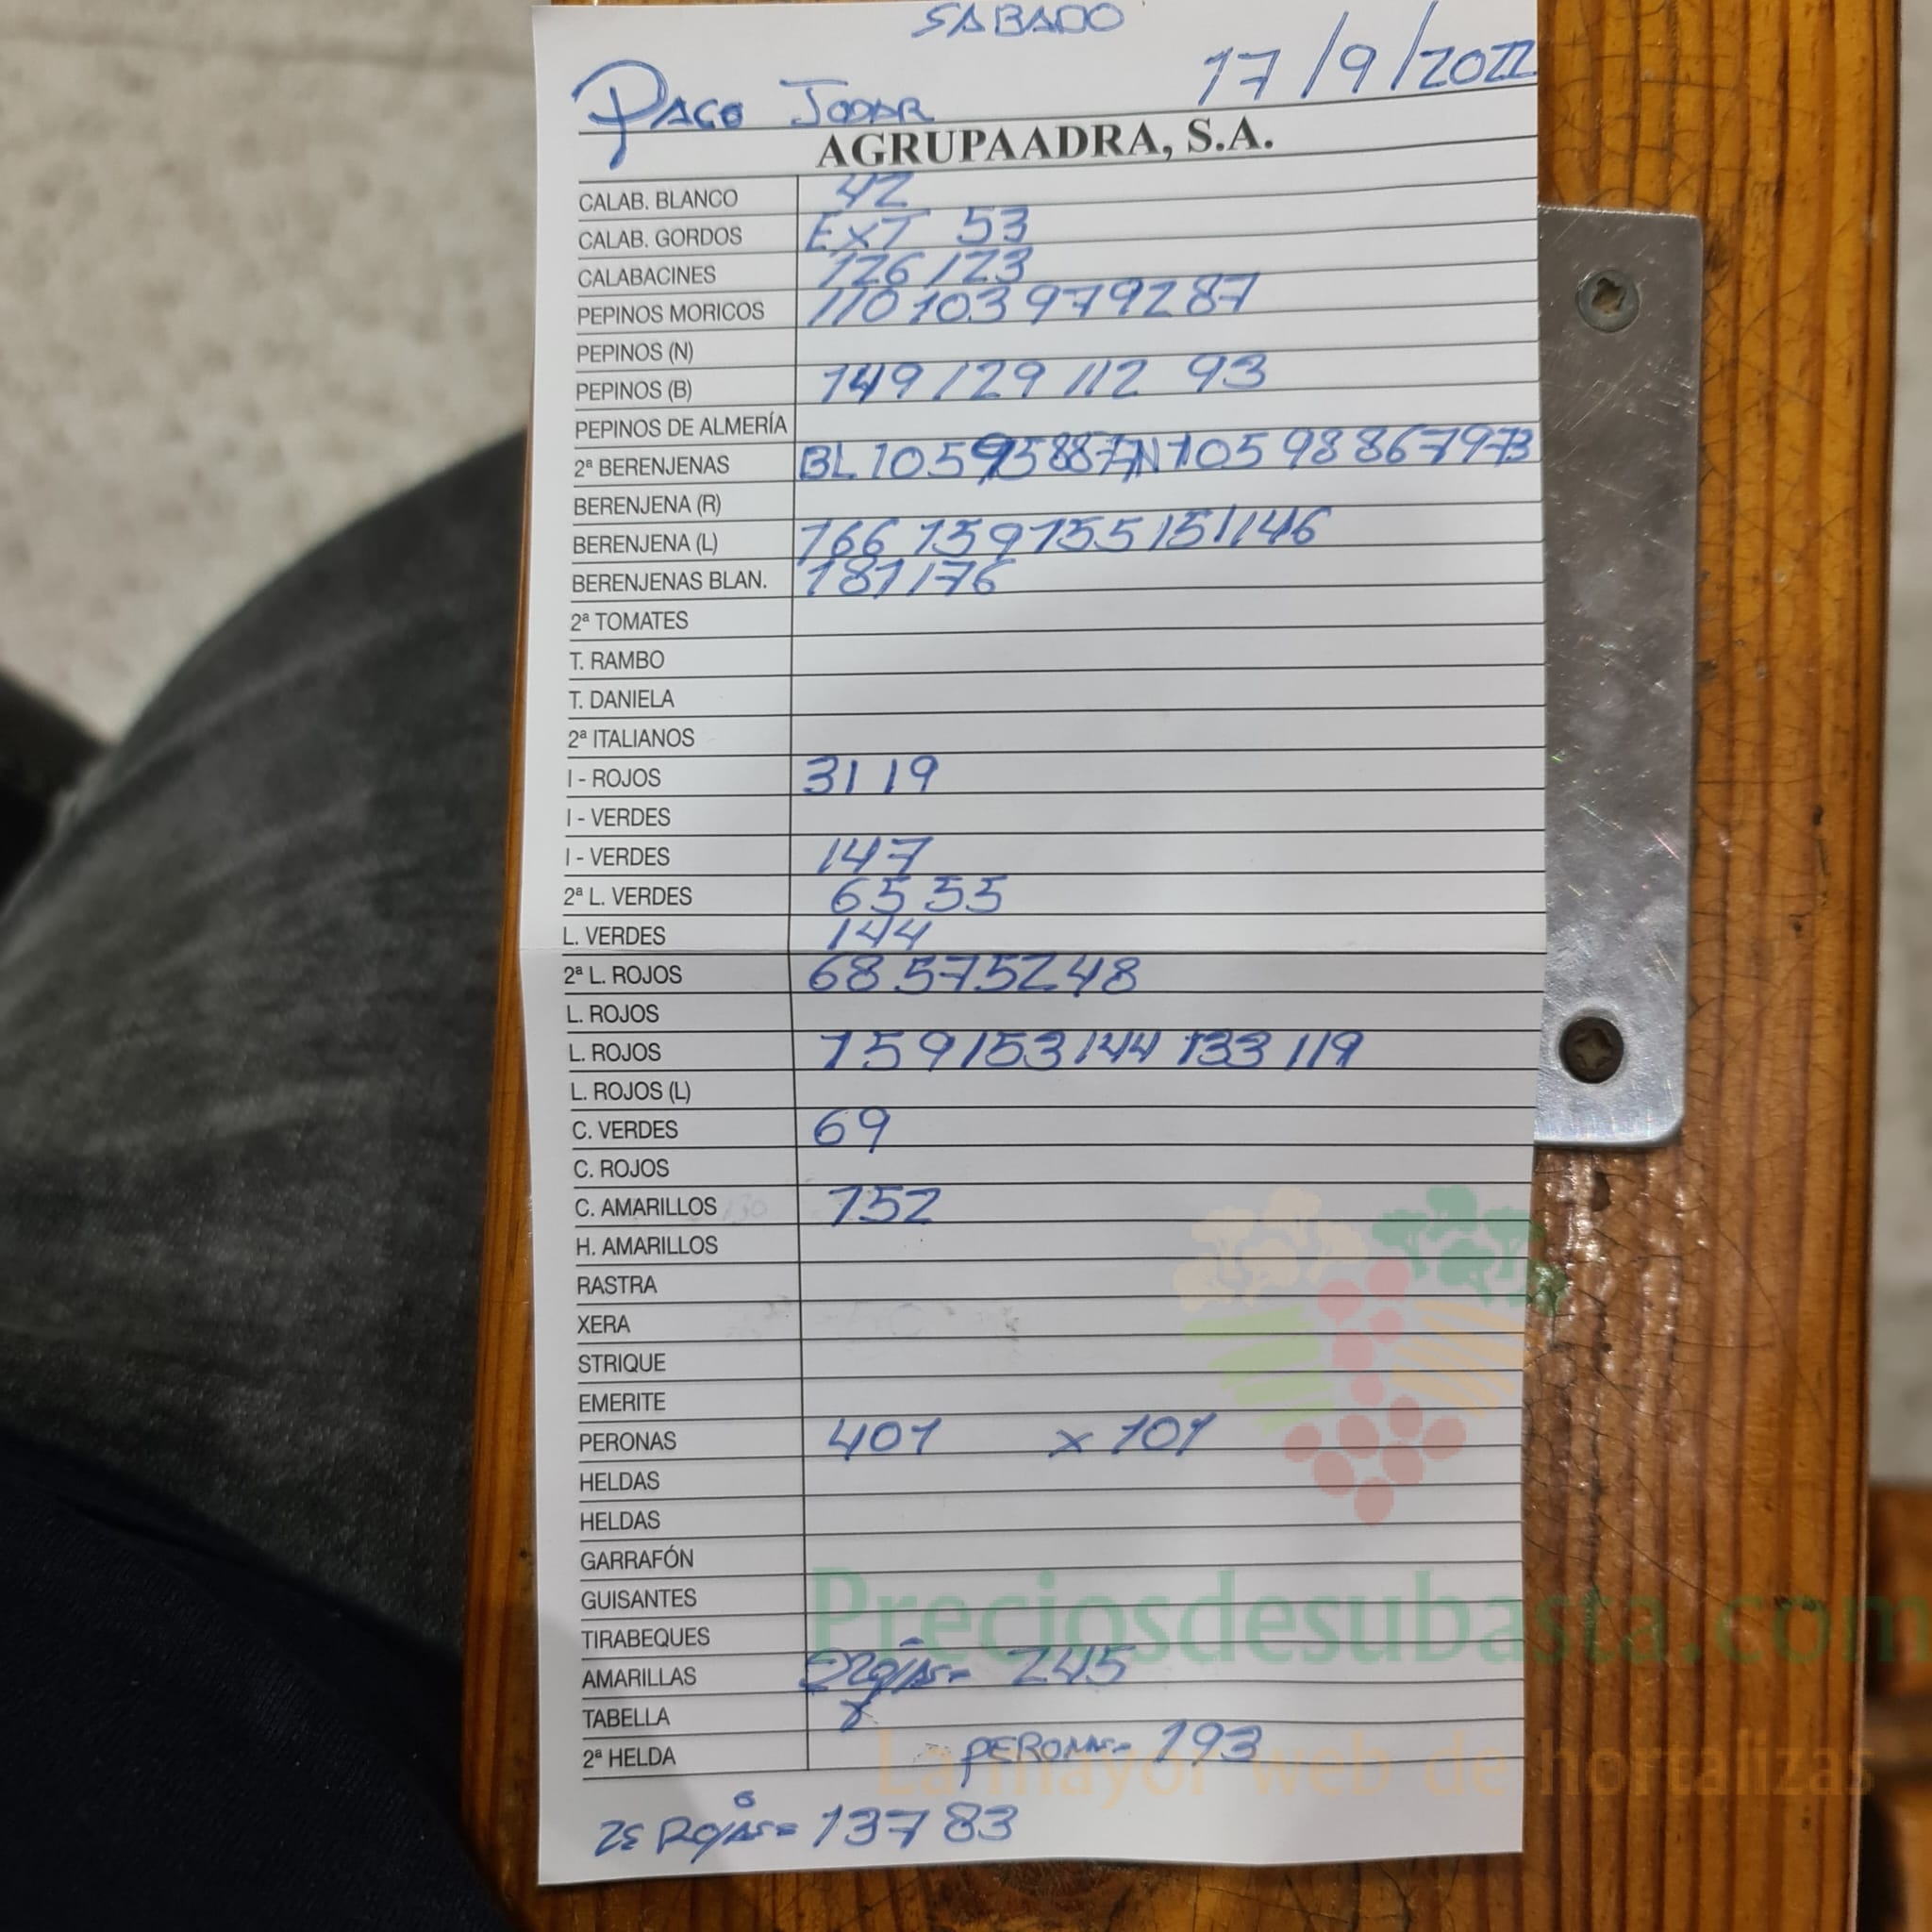 SABADO
PACO JODAR 17/9/2022
AGRUPAADRA, S.A.
CALAB. BLANCO 42
CALAB. GORDOS EXT 53
CALABACINES 126 123
PEPINOS MORICOS 110 103 97 92 87
PEPINOS (N)
PEPINOS (B) 149 129 112 93
PEPINOS DE ALMERÍA
2ª BERENJENAS BL 105 95 88 N 105 98 86 79 73
BERENJENA (R)
BERENJENA (L) 166 159 155 151 146
BERENJENAS BLAN. 181 176
2ª TOMATES
T. RAMBO
T. DANIELA
2ª ITALIANOS
I - ROJOS 31 19
I - VERDES
I - VERDES 147
2ª L. VERDES 65 55
L. VERDES 144
2ª L. ROJOS 68 57 52 48
L. ROJOS
L. ROJOS 159 153 144 133 119
L. ROJOS (L)
C. VERDES 69
C. ROJOS
C. AMARILLOS 152
H. AMARILLOS
RASTRA
XERA
STRIQUE
EMERITE
PERONAS 401 x 101
HELDAS
HELDAS
GARRAFÓN
GUISANTES
TIRABEQUES
AMARILLAS ROJAS= 245
TABELLA
2ª HELDA PERONA= 193
ROJAS= 137 83
Preciosdesubasta.com
La mayor web de hortalizas